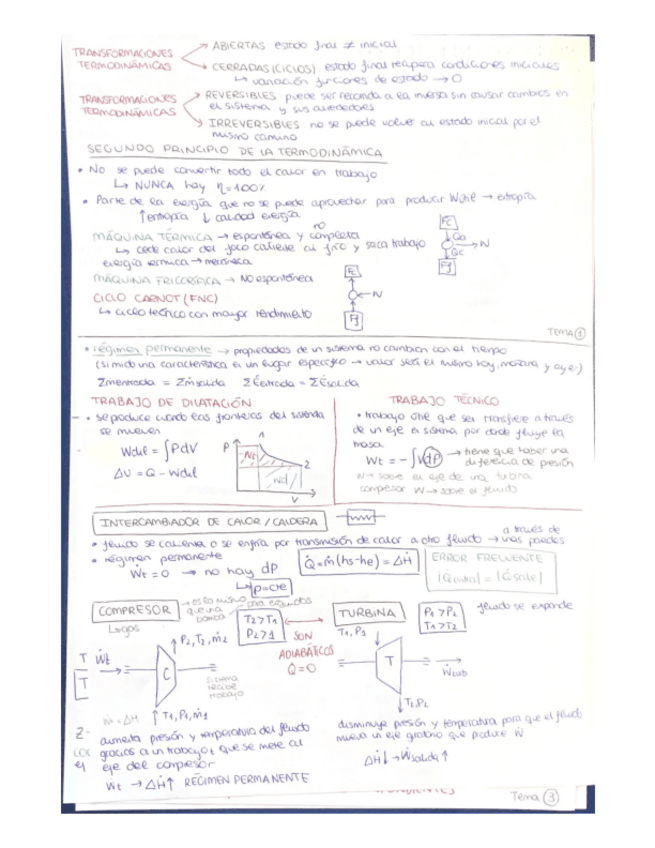 TRANSFORMACIONES TERMODINÁMICAS
ABIERTAS estado final ≠ inicial
CERRADAS (CICLOS) estado final recupera condiciones iniciales
↳ variación funciones de estado → 0
TRANSFORMACIONES TERMODINÁMICAS
REVERSIBLES puede ser recorrida a la inversa sin causar cambios en
el sistema y sus alrededores
IRREVERSIBLES no se puede volver al estado inicial por el
mismo camino
SEGUNDO PRINCIPIO DE LA TERMODINÁMICA
• No se puede convertir todo el calor en trabajo
↳ NUNCA hay η=100%
• Parte de la energía que no se puede aprovechar para producir → entropía
↑entropía ↓ calidad energía
MÁQUINA TÉRMICA → espontánea y no completa
↳ cede calor del foco caliente al frío y saca trabajo
energía térmica → mecánica
Fc
Qa
W
Qc
Ff
MÁQUINA FRIGORÍFICA → NO espontánea
CICLO CARNOT (FNC)
↳ ciclo teórico con mayor rendimiento
Fc
W
Ff
TEMA 1
• régimen permanente → propiedades de un sistema no cambian con el tiempo
(si mido una característica en un lugar específico → valor será el mismo hoy, mañana y ayer)
Σṁentrada = Σṁsalida ΣĖentrada = ΣĖsalida
TRABAJO DE DILATACIÓN
• se produce cuando las fronteras del sistema
se mueven
Wdil = ∫PdV
ΔU = Q - Wdil
P
1
Wt
2
Wd
V
TRABAJO TÉCNICO
• trabajo útil que se transfiere a través
de un eje al sistema por donde fluye la
masa
Wt = -∫VdP → tiene que haber una
diferencia de presión
W → sobre el eje de una turbina
compresor W → sobre el fluido
INTERCAMBIADOR DE CALOR / CALDERA
• fluido se calienta o se enfría por transmisión de calor a otro fluido → a través de
unas paredes
• régimen permanente
Ẇt = 0 → no hay dP
↳ p=cte
Q̇ = ṁ(hs-he) = ΔḢ
ERROR FRECUENTE
|Q̇entra| = |Q̇sale|
COMPRESOR → es lo mismo
que una
bomba → para
↳ gas
T2 > T1
P2 > 1
SON
ADIABÁTICOS
Q̇ = 0
TURBINA
P1 > P2
T1 > T2
fluido se expande
Ẇt
P2, T2, ṁ2
C
T1, P1, ṁ1
sistema
recibe
trabajo
Ẇ = ΔH
T1, P1
T
Ẇturb
T2, P2
aumenta presión y temperatura del fluido
gracias a un trabajo, que se mete al
eje del compresor
Wt → ΔḢ↑ RÉGIMEN PERMANENTE
disminuye presión y temperatura para que el fluido
mueva un eje giratorio que produce Ẇ
ΔḢ↓ → Ẇsalida ↑
Tema 3